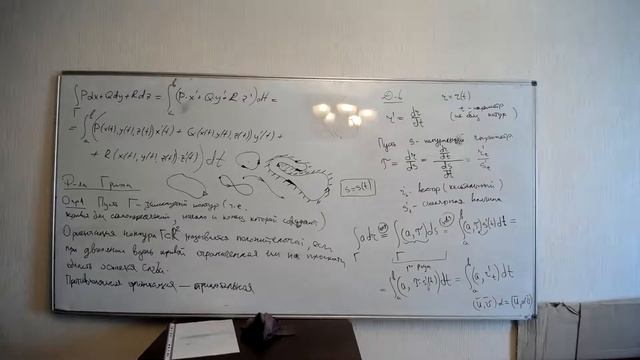 ∫_Γ Pdx+Qdy+Rdz = ∫_a^b (P·x'+Qy'+R·z')dt =
= ∫_a^b (P(x(t),y(t),z(t))x'(t) + Q(x(t),y(t),z(t))y'(t) +
+ R(x(t),y(t),z(t))·z'(t))dt
Ф-ла Грина
Пусть Γ - замкнутый контур (т.е.
кривая без самопересечений, начало и конец которой совпадают)
Ориентация контура Γ⊂R² называется положительной, если
при движении вдоль кривой ограниченная им на плоскости
область остается слева.
Противоположная ориентация — отрицательная
s=s(t)
Д-во
r=r(t)
r' = dr/dt
t - параметр
(не обяз. натур.)
Пусть s - натуральный параметра
τ = dr/ds = (dr/dt)/(ds/dt) = r'_t/s'_t
r'_t - вектор (касательный)
s'_t - скалярная величина
∫_Γ a dr = ∫_Γ (a,τ)ds = ∫_a^b (a,τ)s'(t)dt =
1го рода
= ∫_a^b (a, τ·s'(t))dt = ∫_a^b (a, r'_t)dt
(u,v)α = (u,αv)